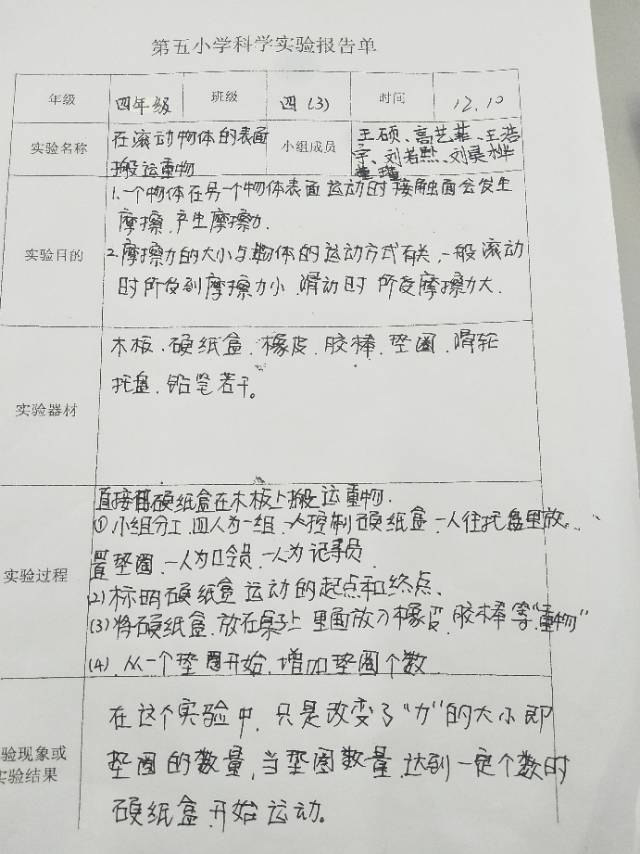 第五小学科学实验报告单
年级 四年级 班级 四(3) 时间 12.10
实验名称 在滚动物体的表面搬运重物 小组成员 王硕、高艺菲、王浩宇、刘若熙、刘
实验目的
1.一个物体在另一个物体表面运动时接触面会发生
摩擦,产生摩擦力.
2.摩擦力的大小与物体的运动方式有关,一般滚动
时所受到摩擦力小.滑动时所受摩擦力大.
实验器材
木板、硬纸盒、橡皮、胶棒、垫圈、滑轮
托盘、铅笔若干。
实验过程
直接用硬纸盒在木板上搬运重物.
①小组分工,四人为一组,一人控制硬纸盒,一人往托盘里放
置垫圈,一人为口令员,一人为记录员
(2)标明硬纸盒运动的起点和终点、
(3)将硬纸盒放在桌子上里面放入橡皮、胶棒等“重物”
(4).从一个垫圈开始,增加垫圈个数
验现象或
实验结果
在这个实验中,只是改变了“力”的大小即
垫圈的数量,当垫圈数量达到一定个数时
硬纸盒开始运动。